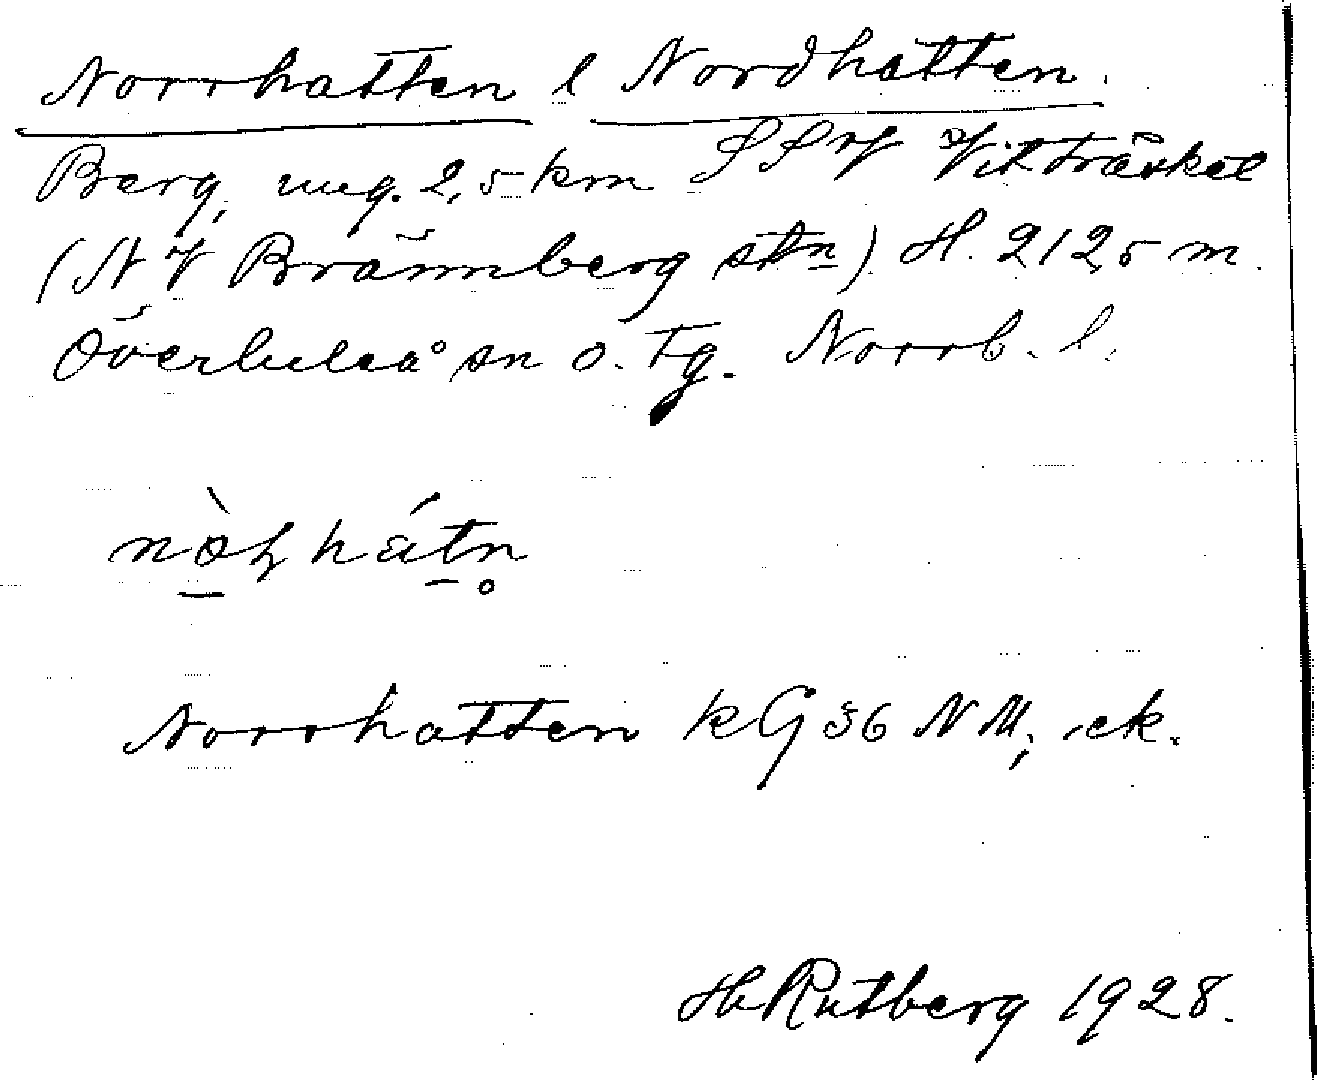 Norrhatten l Nordhatten.
Berg, ung. 2,5 km SSV Vitträsket
(NV Brännberg stn) H. 212,5 m.
Överluleå sn o. tg. Norrb. l.
Norrhatten kG 36 NM; ek.
H Rutberg 1928.